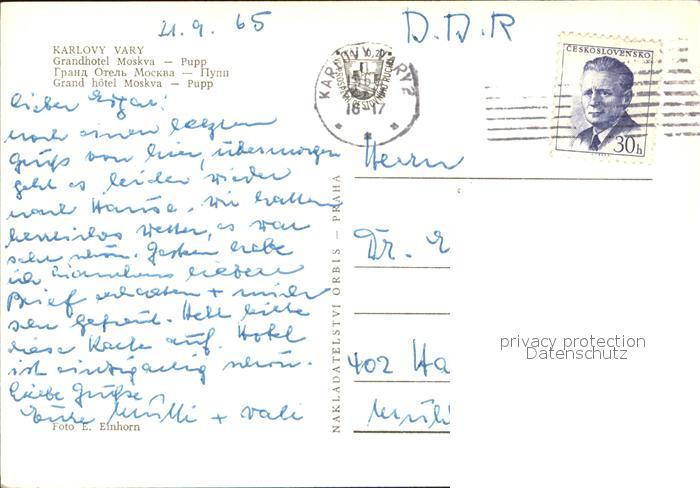 21.9.65
D.D.R
KARLOVY VARY
Grandhotel Moskva — Pupp
Гранд Отель Москва — Пупп
Grand hôtel Moskva — Pupp
lieber
noch einen letzten
Gruß von hier, übermorgen
geht es leider wieder
nach Hause. Wir hatten
herrliches Wetter, es war
sehr schön. Gestern habe
ich lieben
Brief erhalten + mich
sehr gefreut. Hebt bitte
diese Karte auf. Hotel
ist einzigartig schön.
Liebe Grüße
Eure Mutti + Vati
Foto E. Einhorn
NAKLADATELSTVÍ ORBIS — PRAHA
KARLOVY VARY
16-17
ČESKOSLOVENSKO
30h
Herrn
Dr. E
402 Ha
privacy protection
Datenschutz